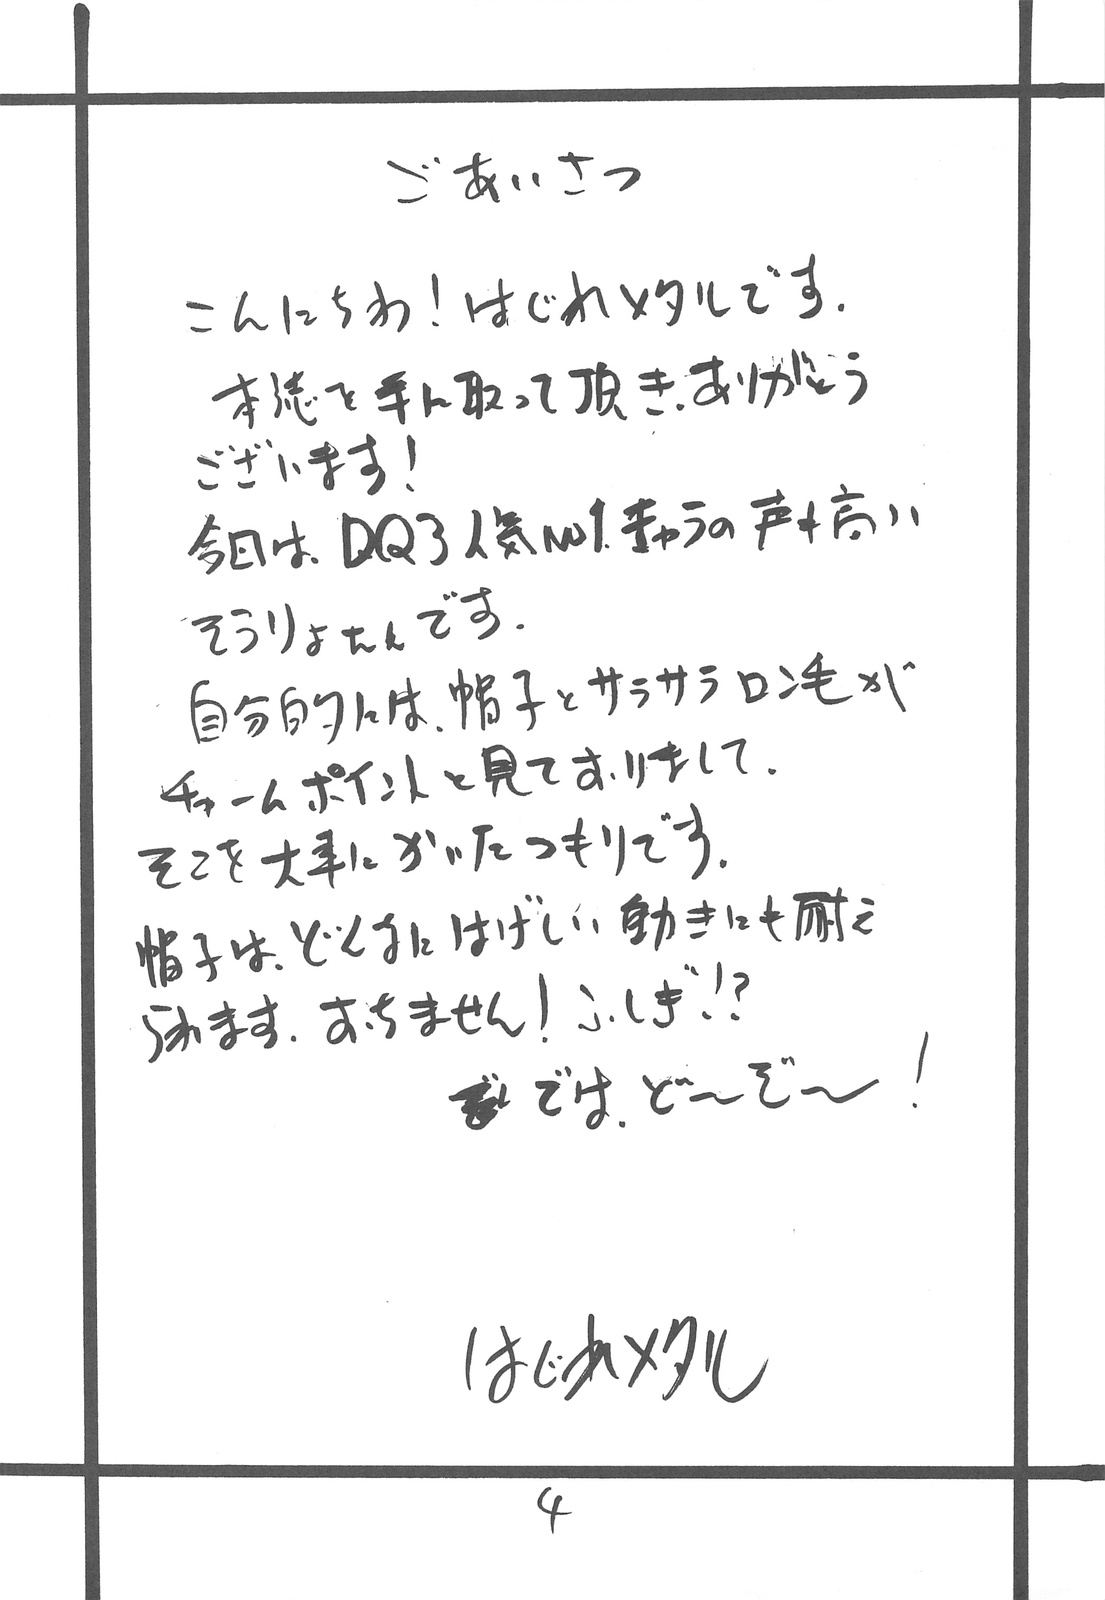 ごあいさつ
こんにちわ！はじれメタルです.
本誌を手に取って頂き、ありがとう
ございます！
今日は、DQ3人気No1.きゃうの声も高い
そうりょたんです.
自分的には、帽子とサラサラロン毛が
チャームポイントと見ておりまして.
そこを大事にかいたつもりです.
帽子は、どんなにはげしい動きにも耐え
られます. おちません！ふしぎ!?
では、ど〜ぞ〜！
はじれメタル
4